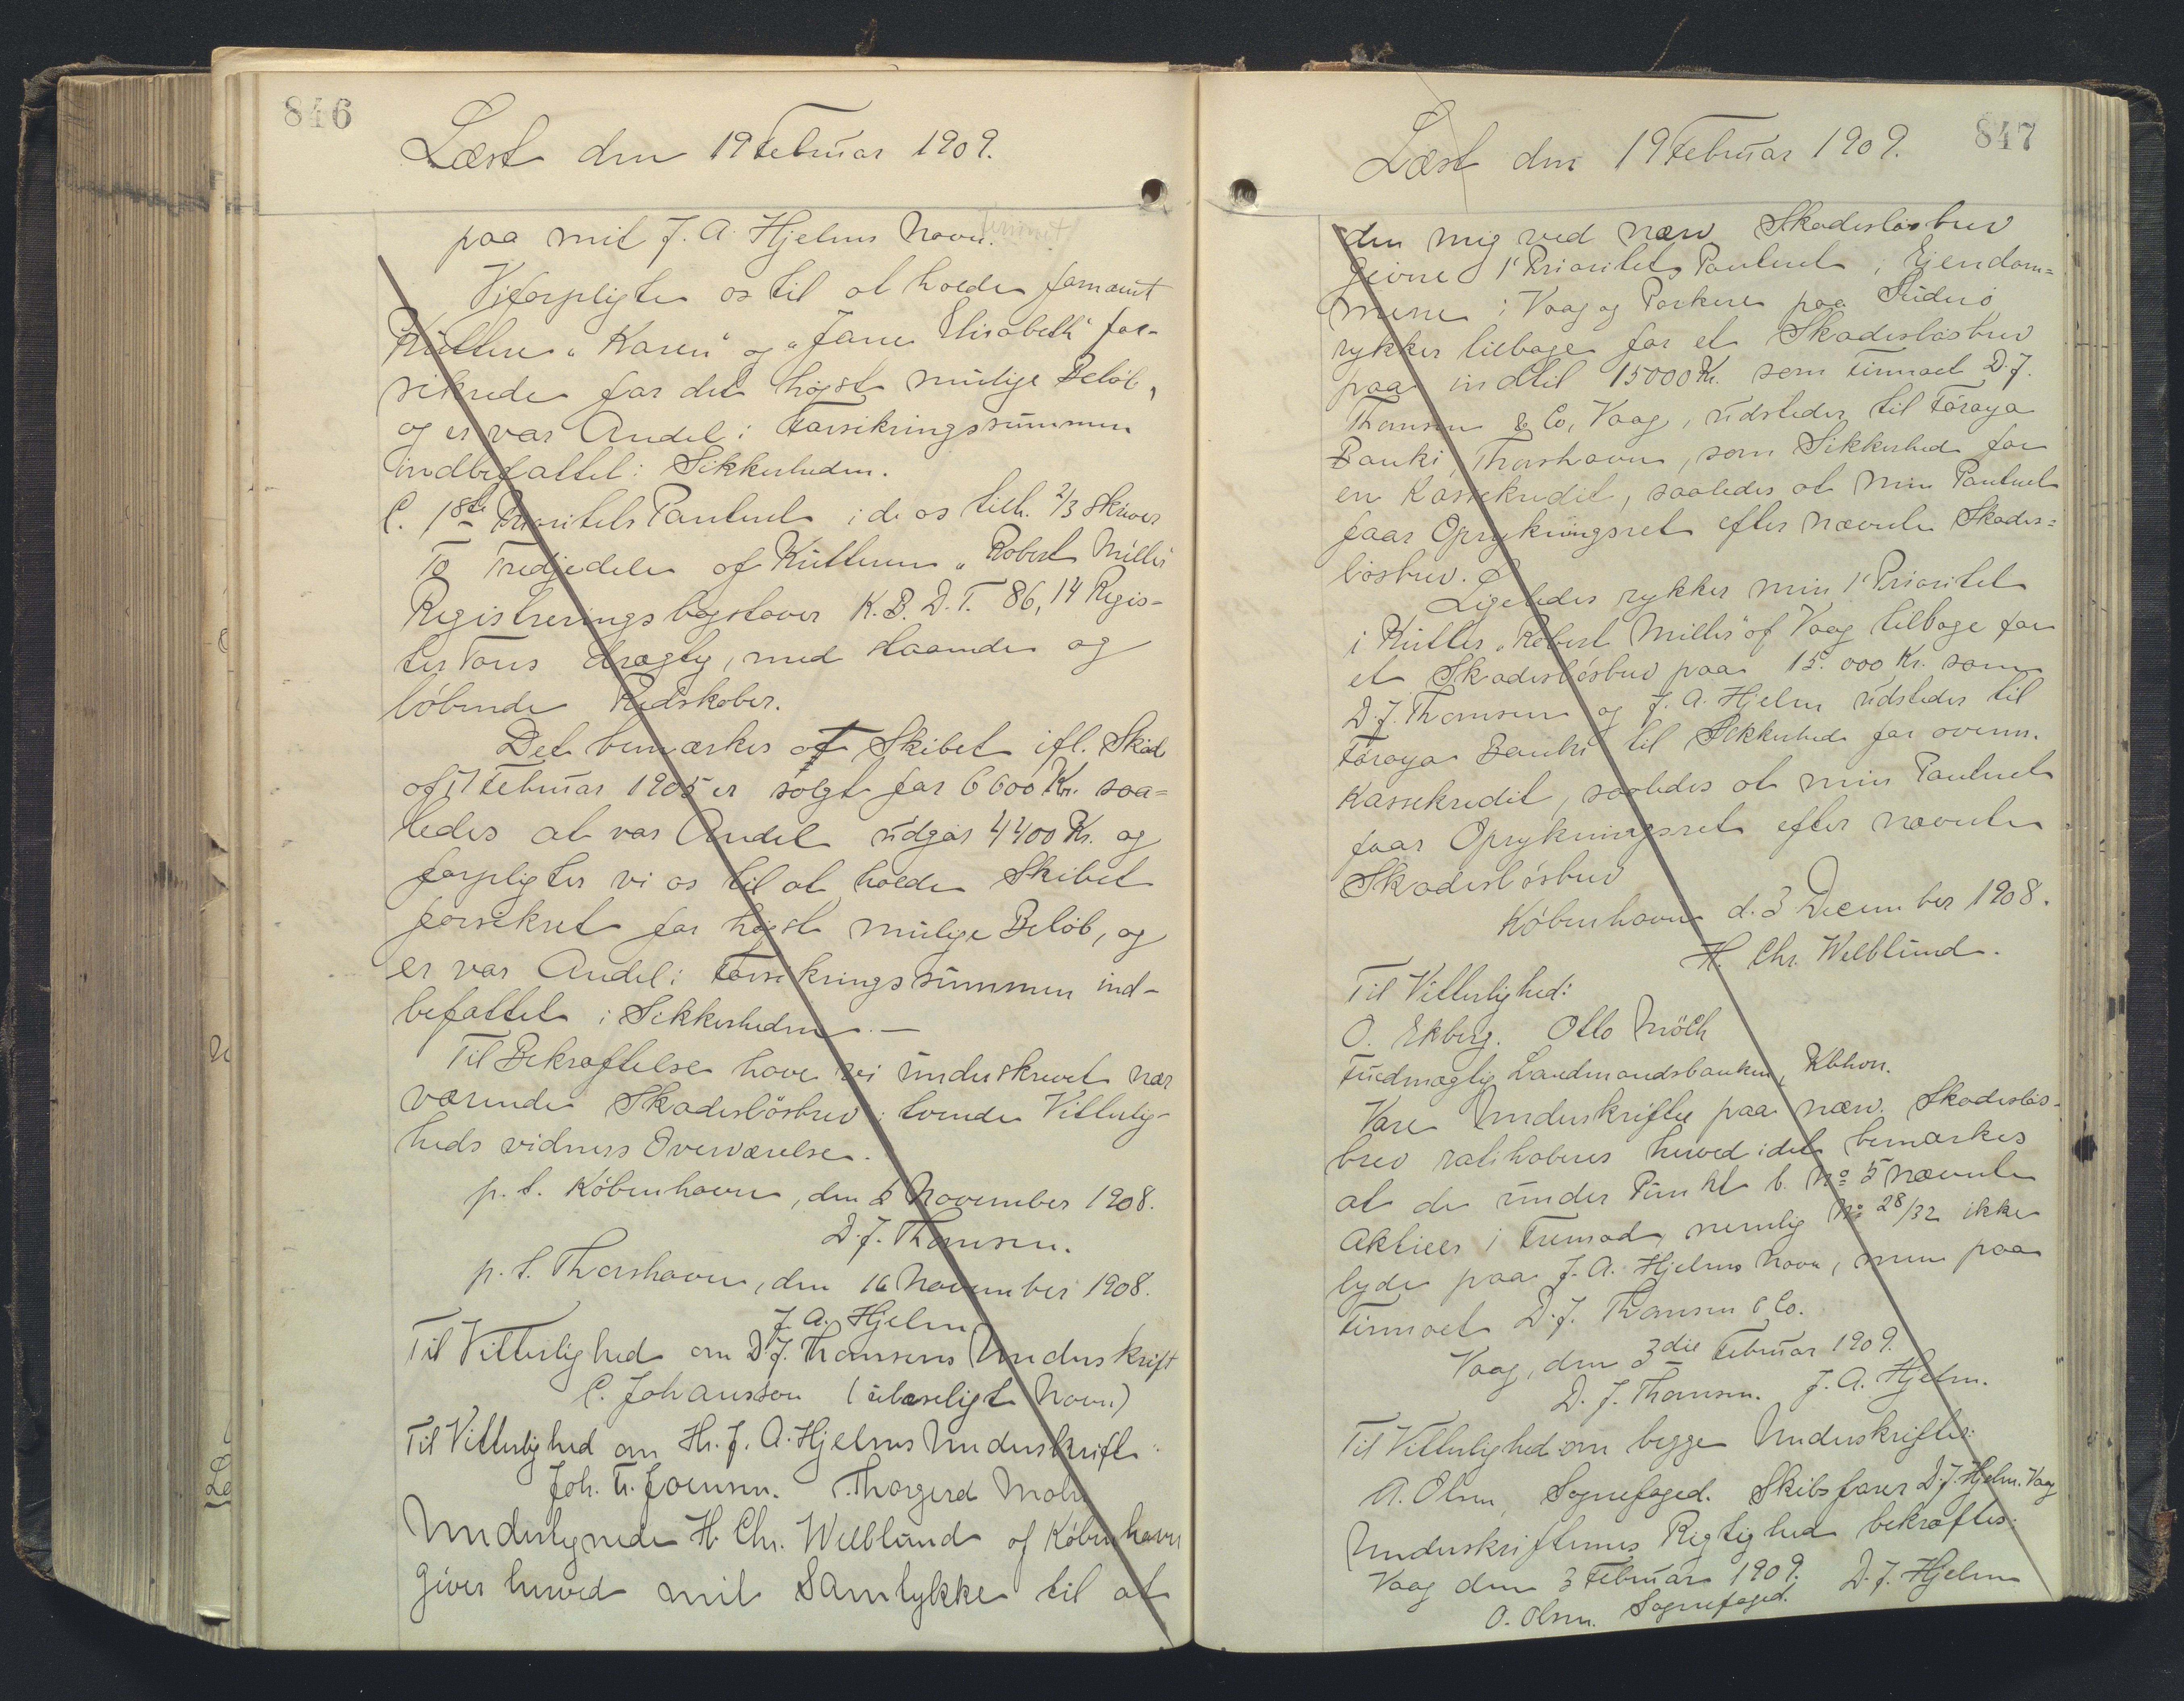 846
Læst den 19 Februar 1909.
paa mit J. A. Hjelms Navn.
Vi forpligte os til at holde fornævnt
Kuttere "Karen" og "Jane Elisabeth" for-
sikrede for det højst mulige Beløb,
og er vor Andel i Forsikringssummen
indbefattet i Sikkerheden.
C. 1ste Prioritets Panteret i de os tilh. 2/3 skriver
To Tredjedele af Kutteren "Robert Miller"
Registreringsbogstaver K.B.D.T. 86,14 Regis-
ter Tons drægtig, med staaende og
løbende Redskaber.
Det bemærkes at Skibet ifl. Skøde
af 17 Februar 1905 er solgt for 6600 Kr. saa=
ledes at vor Andel udgør 4400 Kr. og
forpligter vi os til at holde Skibet
forsikret for højst mulige Beløb, og
er vor Andel i Forsikringssummen ind-
befattet i Sikkerheden. —
Til Bekræftelse have vi underskrevet nær
værende Skadesløsbrev i tvende Vitterlig-
heds vidners Overværelse.
p. t. København, den 6 November 1908.
D. J. Thomsen.
p. t. Thorshavn, den 16 November 1908.
J. A. Hjelm
Til Vitterlighed om D. J. Thomsens Underskrift
C. Johansson (ulæseligt Navn)
Til Vitterlighed om Hr. J. A. Hjelms Underskrift:
Joh. Fr. Joensen. Thorgerd Mohr
Undertegnede H. Chr. Welblund af København
giver herved mit Samtykke til at
847
Læst den 19 Februar 1909.
den mig ved nærv Skadesløsbrev
givne 1' Prioritets Panteret i Ejendom=
mene i Vaag og Porkere paa Suderø
rykker tilbage for et Skadesløsbrev
paa indtil 15000 Kr. som Firmaet D. J.
Thomsen & Co, Vaag, udsteder til Föroya
Banki, Thorshavn, som Sikkerhed for
en Kassekredit, saaledes at min Panteret
faar Oprykningsret efter nævnte Skades=
løsbrev.
Ligeledes rykker min 1' Prioritet
i Kutter "Robert Miller" af Vaag tilbage for
et Skadesløsbrev paa 15.000 Kr. som
D. J. Thomsen og J. A. Hjelm udsteder til
Föroya Banki til Sikkerhed for ovenn.
Kassekredit, saaledes at min Panteret
faar Oprykningsret efter nævnte
Skadesløsbrev
København d. 3 December 1908.
H. Chr. Welblund.
Til Vitterlighed:
O. Ekberg. Otto
Fuldmægtig Landmandsbanken, Kbhvn.
Vore Underskrifter paa nærv. Skadesløs-
brev ratihaberes herved idet bemærkes
at de under Punkt b. No 5 nævnte
Aktier i Fremad, nemlig No 28/32 ikke
lyde paa J. A. Hjelms Navn, men paa
Firmaet D. J. Thomsen & Co.
Vaag, den 3die Februar 1909.
D. J. Thomsen. J. A. Hjelm.
Til Vitterlighed om begge Underskrifter:
A. Olsen, Sognefoged. Skibsfører D. J. Hjelm. Vaag
Underskrifternes Rigtighed bekræftes:
Vaag den 3 Februar 1909. D. J. Hjelm
O. Olsen. Sognefoged.